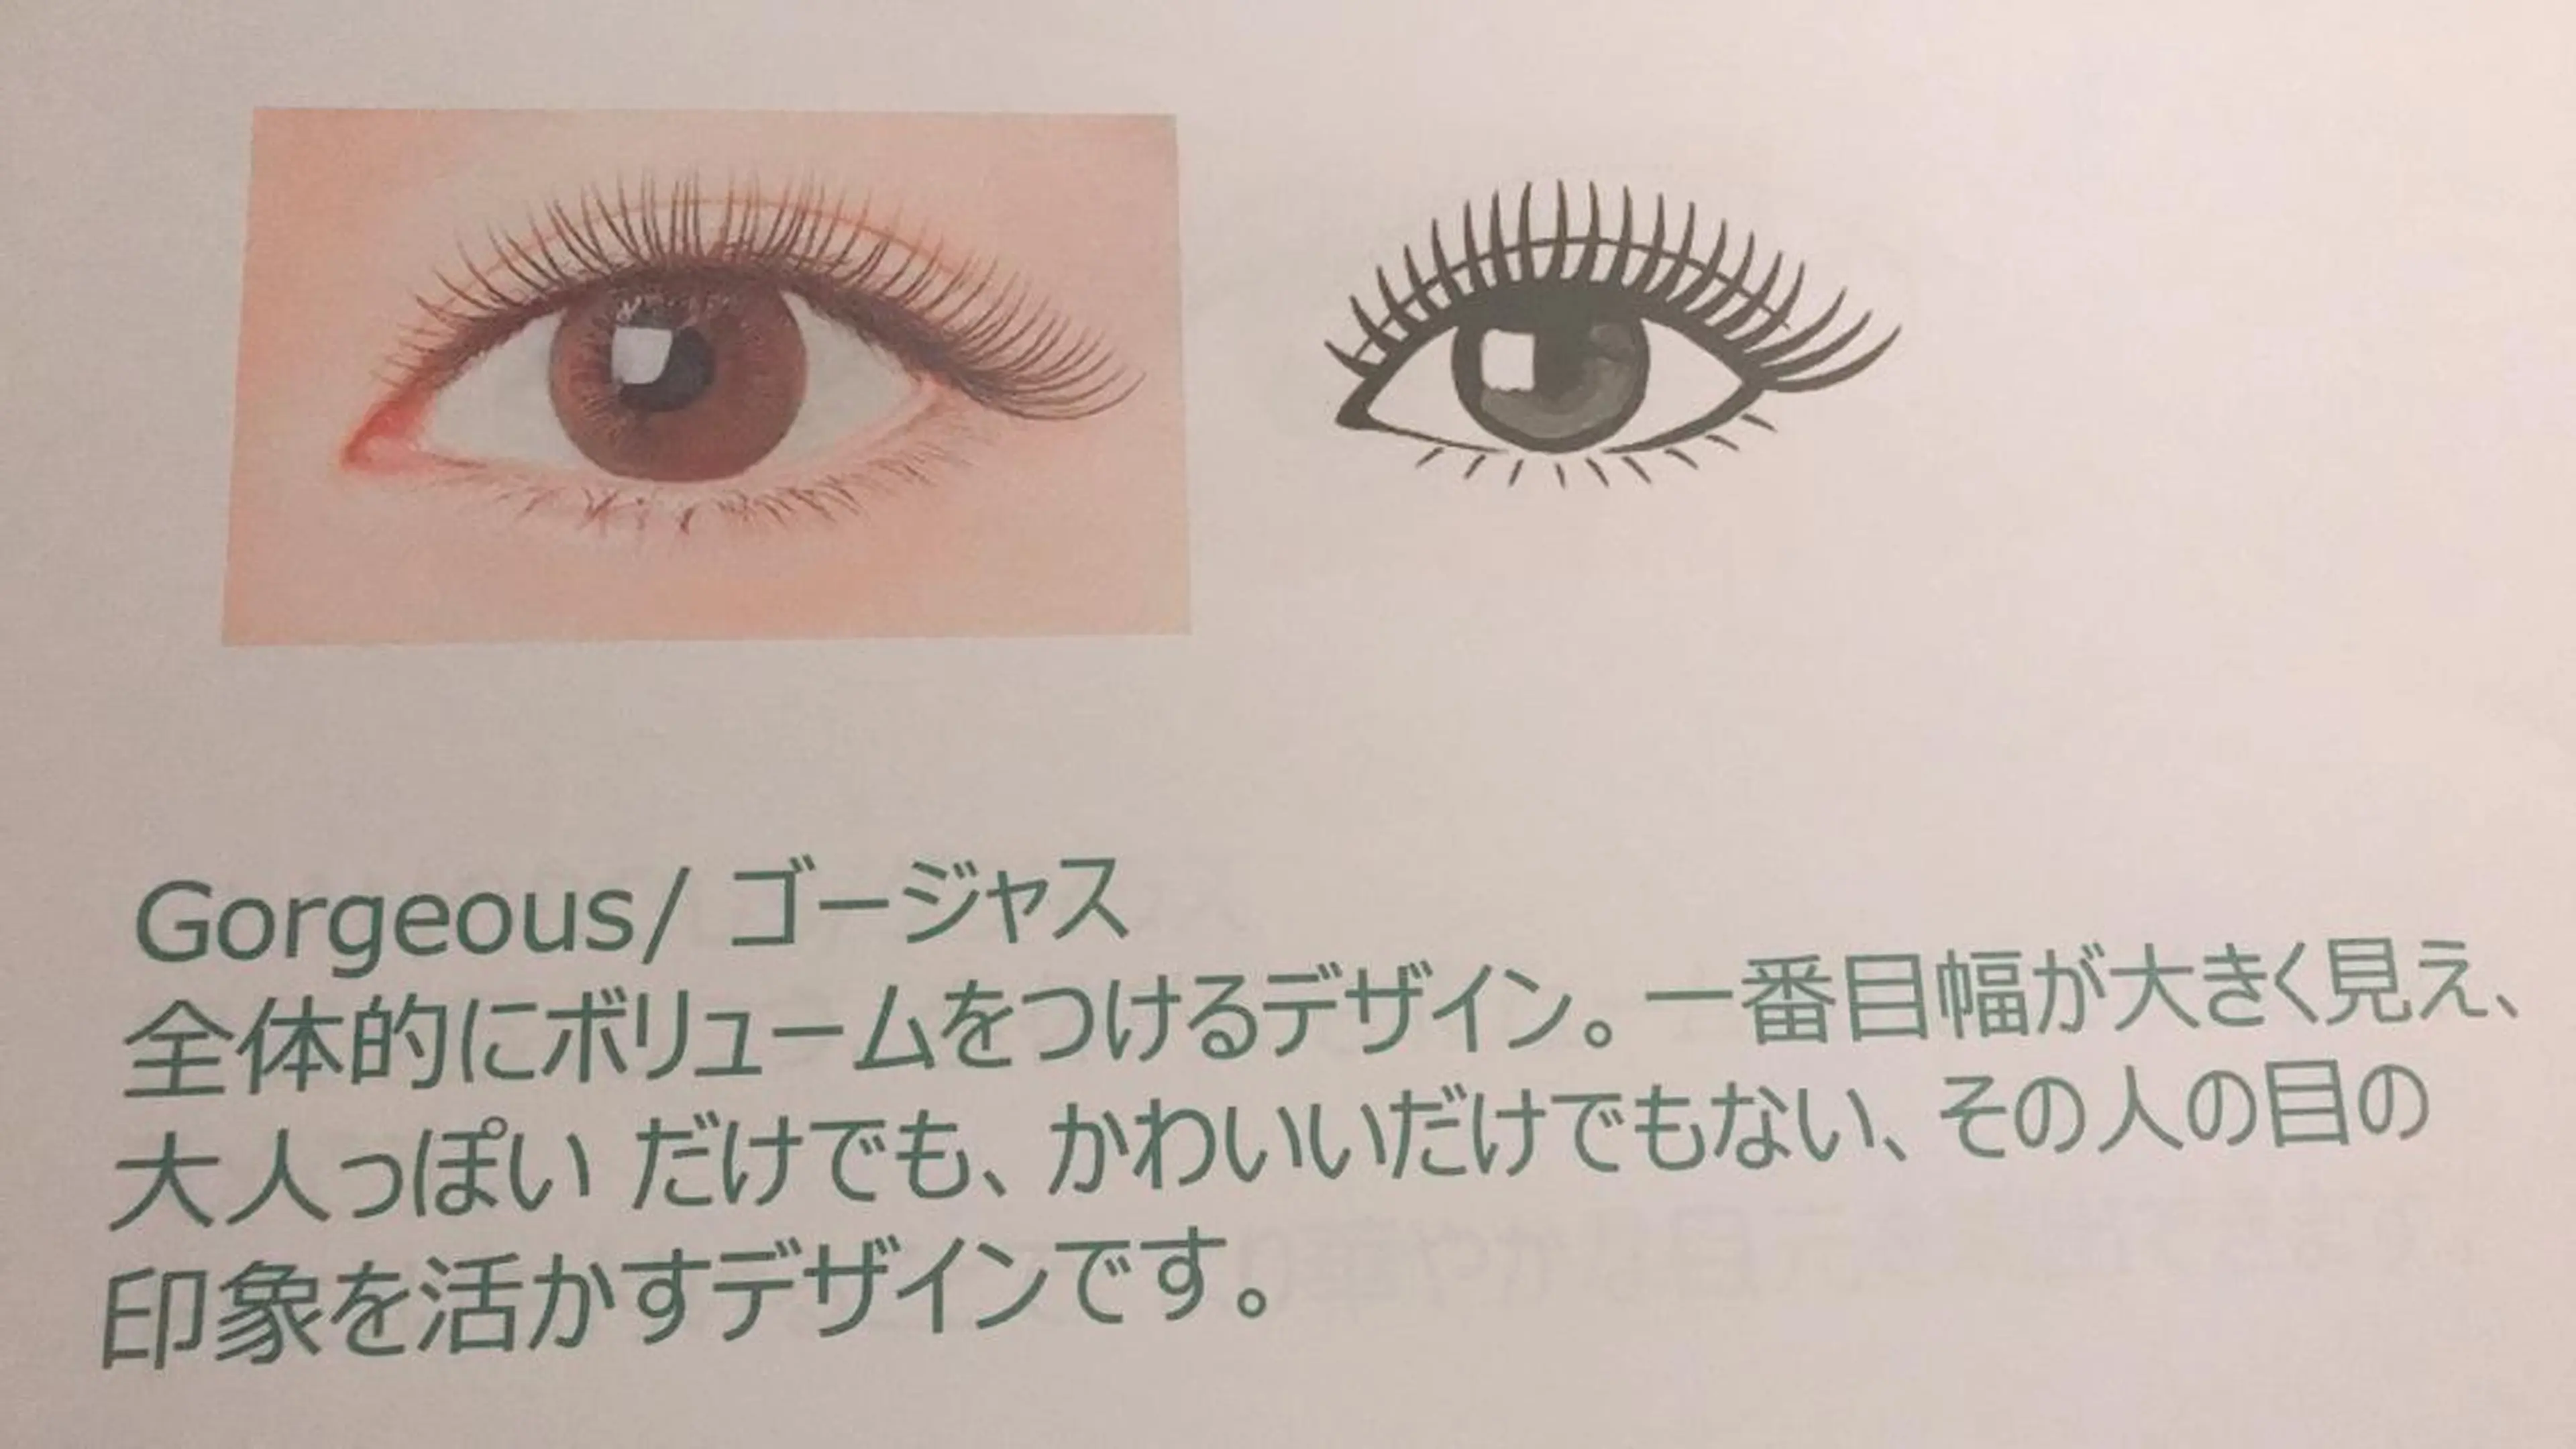 Gorgeous/ ゴージャス
全体的にボリュームをつけるデザイン。一番目幅が大きく見え、
大人っぽい だけでも、かわいいだけでもない、その人の目の
印象を活かすデザインです。